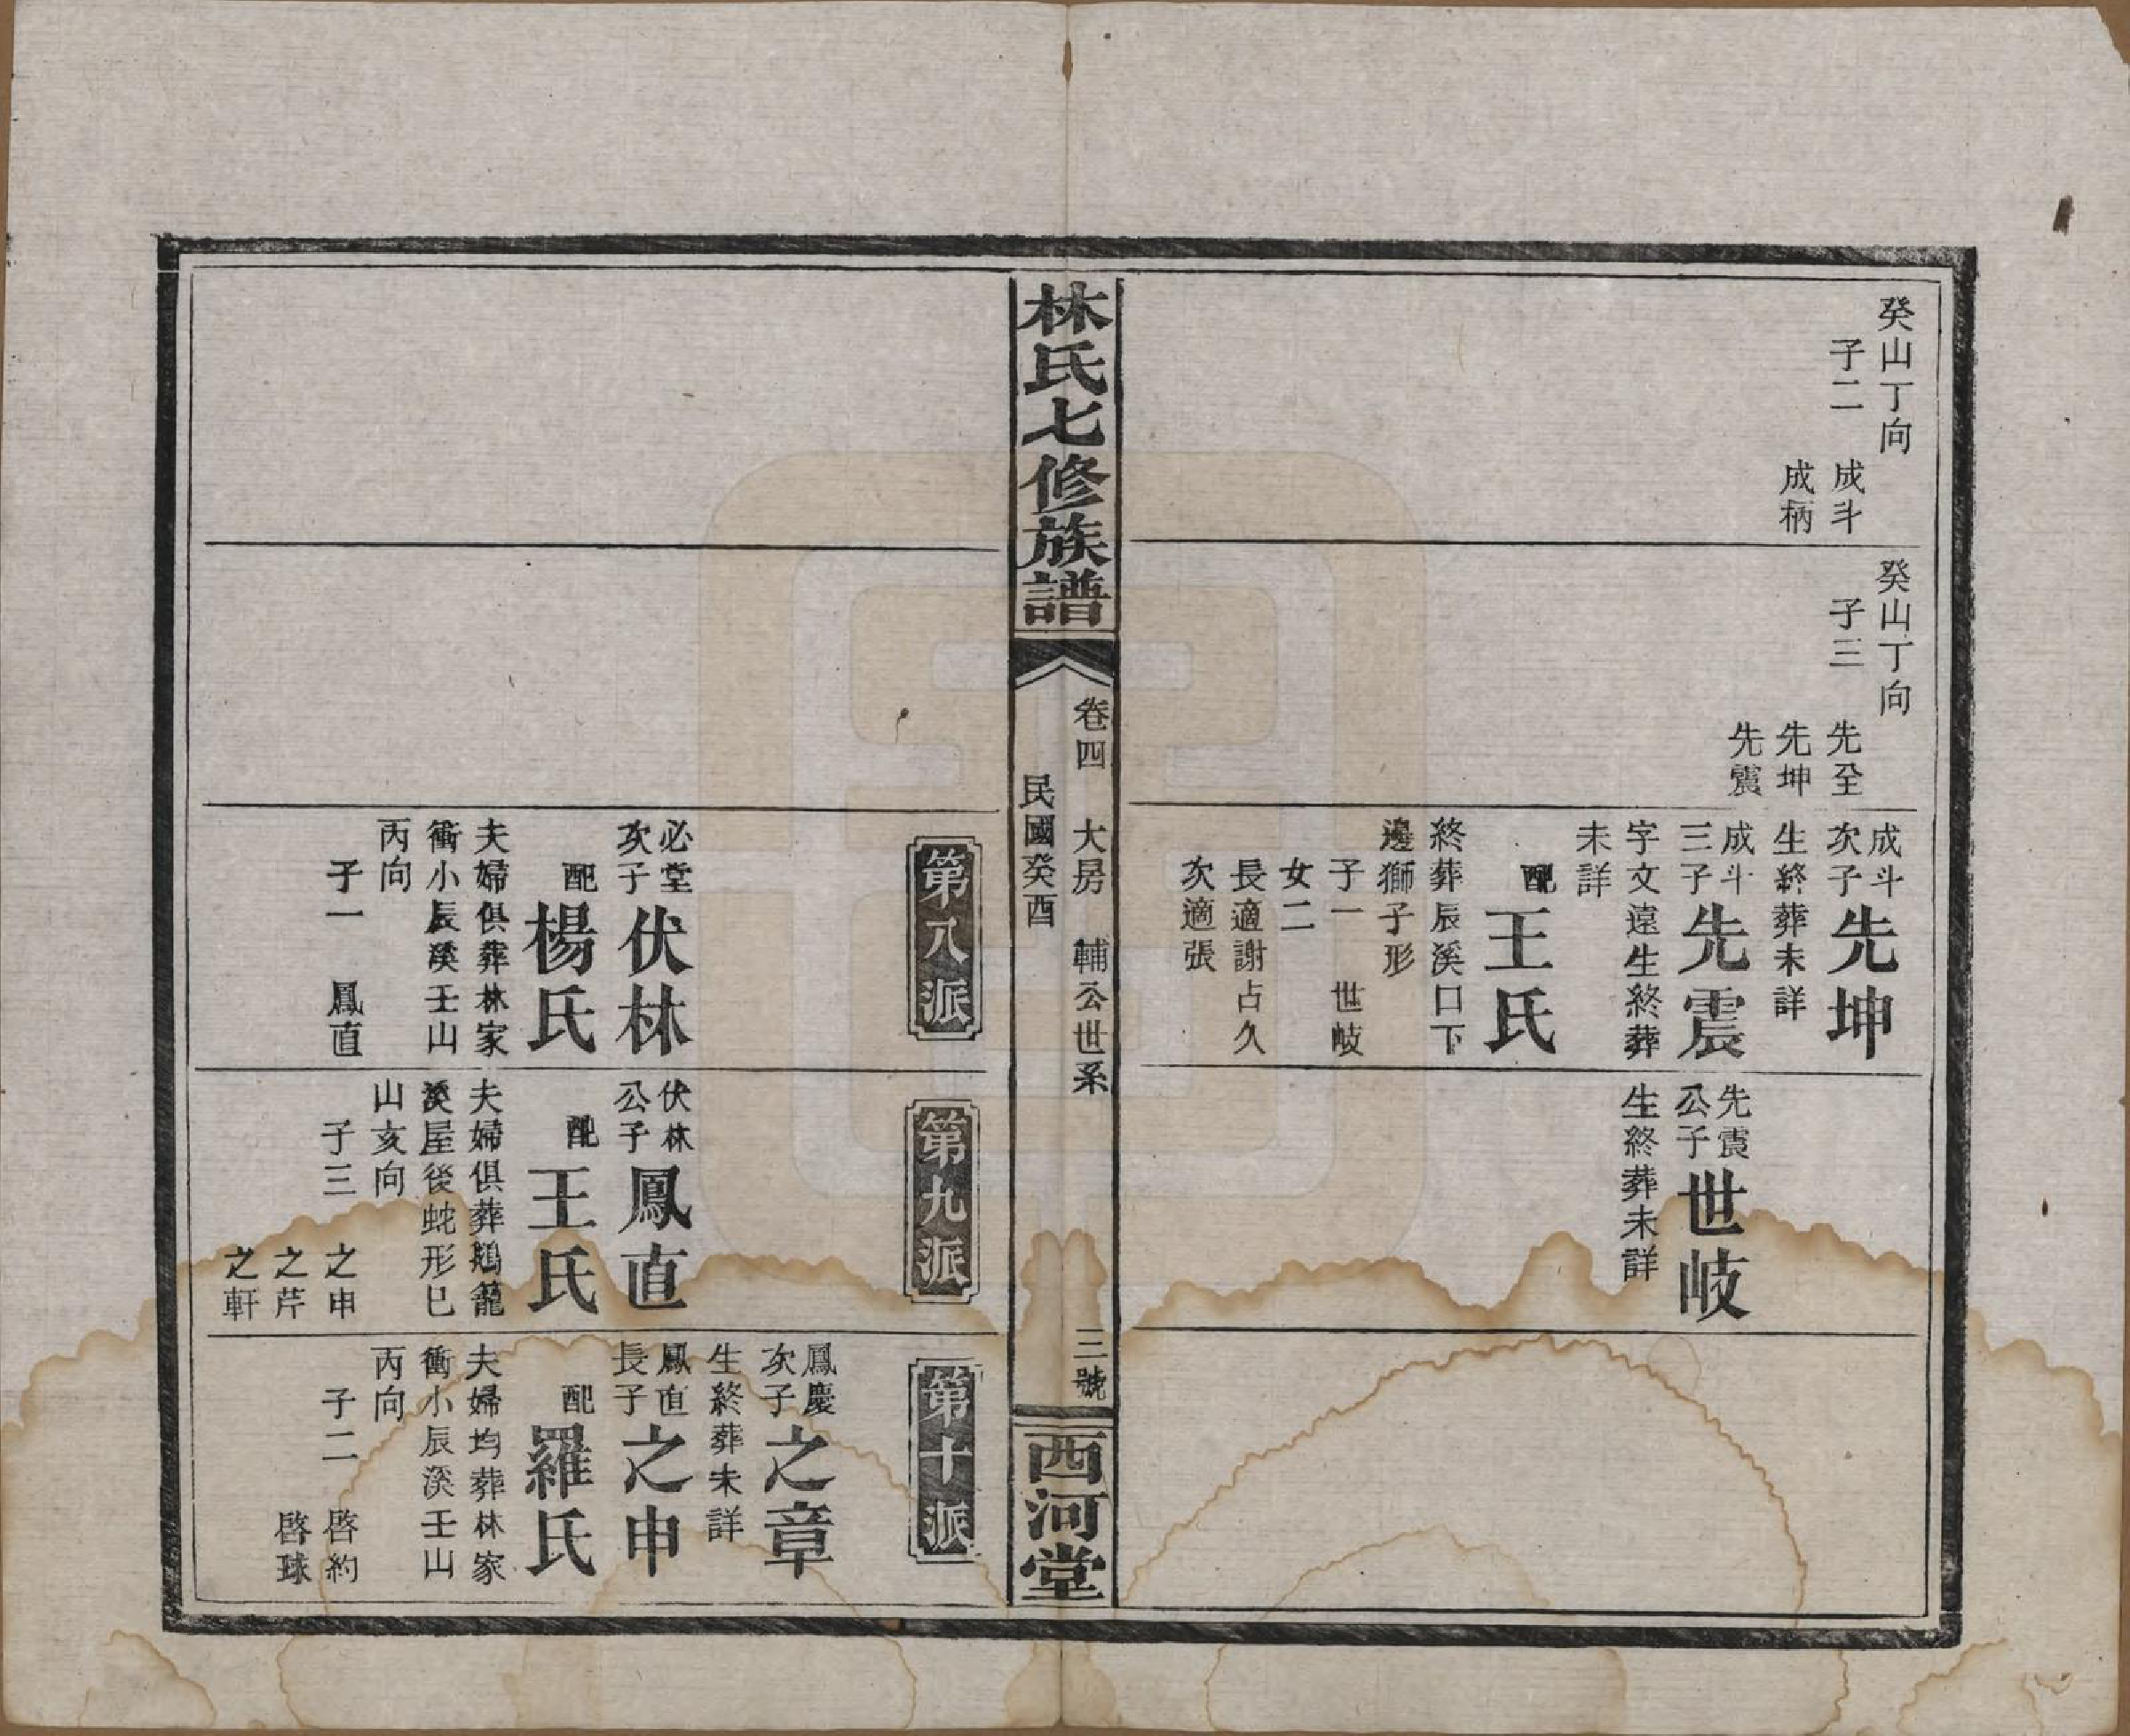 癸山丁向
子二
成斗
成柄
癸山丁向
子三
先全
先坤
先震
成斗
次子
先坤
生終葬未詳
成斗
三子
先震
字文遠生終葬
未詳
配
王氏
終葬辰溪口下
邊獅子形
子一
世岐
女二
長適謝占久
次適張
先震
公子
世岐
生終葬未詳
林氏七修族譜
卷四
大房
輔公世系
三號
民國癸酉
西河堂
第八派
必堂
次子
伏林
配
楊氏
夫婦俱葬林家
衝小辰溪壬山
丙向
子一
鳳直
第九派
伏林
公子
鳳直
配
王氏
夫婦俱葬鵝籠
溪屋後蛇形巳
山亥向
子三
之申
之芹
之軒
第十派
鳳慶
次子
之章
生終葬未詳
鳳直
長子
之申
配
羅氏
夫婦均葬林家
衝小辰溪壬山
丙向
子二
啓約
啓球